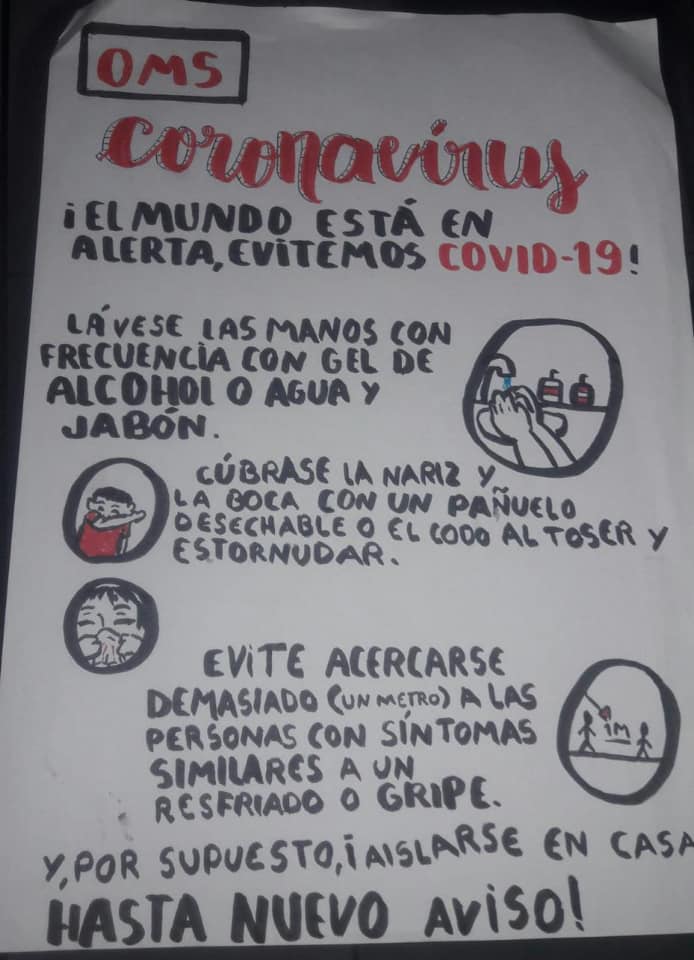 OMS
coronavírus
¡EL MUNDO ESTÁ EN
ALERTA, EVITEMOS COVID-19!
LÁVESE LAS MANOS CON
FRECUENCÌA CON GEL DE
ALCOHOL O AGUA Y
JABÓN.
CÚBRASE LA NARIZ Y
LA BOCA CON UN PAÑUELO
DESECHABLE O EL CODO AL TOSER Y
ESTORNUDAR.
EVITE ACERCARSE
DEMASIADO (UN METRO) A LAS
PERSONAS CON SÍNTOMAS
SIMILARES A UN
RESFRIADO O GRIPE.
1M
Y, POR SUPUESTO, ¡AISLARSE EN CASA
HASTA NUEVO AVISO!